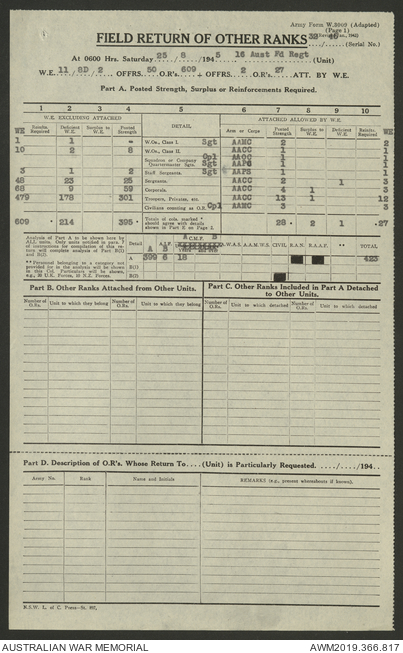 Army Form W.3009 (Adapted)
(Page 1)
FIELD RETURN OF OTHER RANKS 32 46
(Serial No.)
At 0600 Hrs. Saturday 25 / 8 /194 5 16 Aust Fd Regt (Unit)
W.E. 11 / 8D / 2 OFFRS. 50 O.R's. 609 + OFFRS. 2 O.R's. 27 ATT. BY W.E.
Part A. Posted Strength, Surplus or Reinforcements Required.
1 2 3 4 5 6 7 8 9 10
W.E. EXCLUDING ATTACHED DETAIL ATTACHED ALLOWED BY W.E.
WE Reinfts. Required Deficient W.E. Surplus to W.E. Posted Strength Arm or Corps Posted Strength Surplus to W.E. Deficient W.E. Reinfts. Required WE
1 1 - W.Os., Class I. Sgt AAMC 2 2
10 2 8 W.Os., Class II. AAOC 1 1
Squadron or Company Quartermaster Sgts. Cpl Sgt AAPS 1 1
3 1 2 Staff Sergeants. Sgt AAPS 1 1
48 23 25 Sergeants. AACC 2 1 3
68 9 59 Corporals. AACC 4 1 3
479 178 301 Troopers, Privates, etc. AACC 13 1 12
Civilians counting as O.R. Cpl AAMC 3 3
609 214 395 Totals of cols. marked * should agree with details shown in Part K on Page 2. 28 2 1 27
Analysis of Part A to be shown here by ALL units. Only units entitled in para. 7 of instructions for compilation of this return will complete analysis of Part B(1) and B(2).
Detail A.I.F. C.M.F. W.A.A.A.F. A.A.M.W.S. CIVIL. R.A.N. R.A.A.F. ** TOTAL
A B A B
A 399 6 18 423
B(1)
B(2)
Part B. Other Ranks Attached from Other Units.
Number of O.Rs. Unit to which they belong Number of O.Rs. Unit to which they belong
Part C. Other Ranks Included in Part A Detached to Other Units.
Number of O.Rs. Unit to which detached Number of O.Rs. Unit to which detached
Part D. Description of O.R's. Whose Return To....(Unit) is Particularly Requested. ..../..../194..
Army No. Rank Name and Initials REMARKS (e.g., present whereabouts if known).
AUSTRALIAN WAR MEMORIAL
AWM2019.366.817